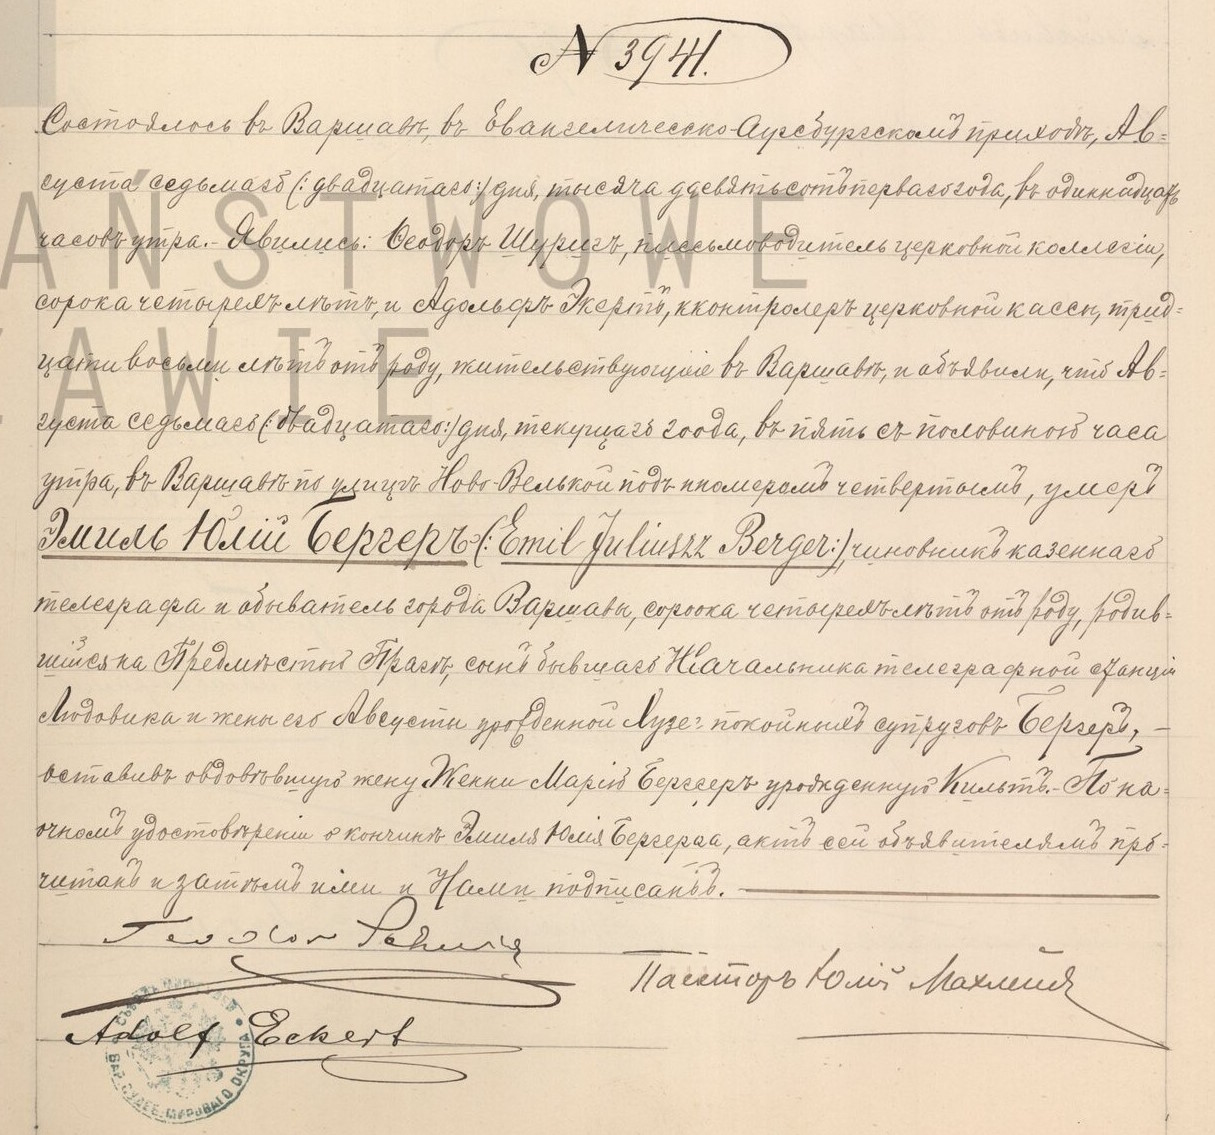 № 3941.
Состоялось въ Варшавѣ, въ Евангелическо-Аугсбургскомъ приходѣ, Ав=
густа седьмаго (: двадцатаго:) дня, тысяча девятьсотъ перваго года, въ одиннадцать
PAŃSTWOWE
часовъ утра.- Явились: Ѳеодоръ Шуригъ, письмоводитель церковной коллегіи,
сорока четырехъ лѣтъ, и Адольфъ Экертъ, контролеръ церковной кассы, трид=
ZAWIE
цати восьми лѣтъ отъ роду, жительствующіе въ Варшавѣ, и объявили, что Ав=
густа седьмаго (: двадцатаго:) дня, текущаго года, въ пять съ половиною часа
утра, въ Варшавѣ по улицѣ Ново-Велькой подъ номеромъ четвертымъ, умеръ
Эмиль Юлій Бергеръ (: Emil Juliusz Berger:), чиновникъ казеннаго
телеграфа и обыватель города Варшавы, сорока четырехъ лѣтъ отъ роду, родив=
шійся на Предмѣстьѣ Прагѣ, сынъ бывшаго Начальника телеграфной станціи
Людовика и жены его Августы урожденной покойныхъ супруговъ Бергеръ, —
оставивъ овдовѣвшую жену Женни Марію Бергеръ урожденную Кильтъ.- По на=
очномъ удостовѣреніи о кончинѣ Эмиля Юлія Бергера, актъ сей объявителямъ про=
читанъ и затѣмъ ими и Нами подписанъ.
Teodor Schurig
Пасторъ Юлій Махлейдъ
Adolf Eckert
СЪѢЗДЪ МИРОВЫХЪ СУДЕЙ ВАР. МИРОВАГО ОКРУГА